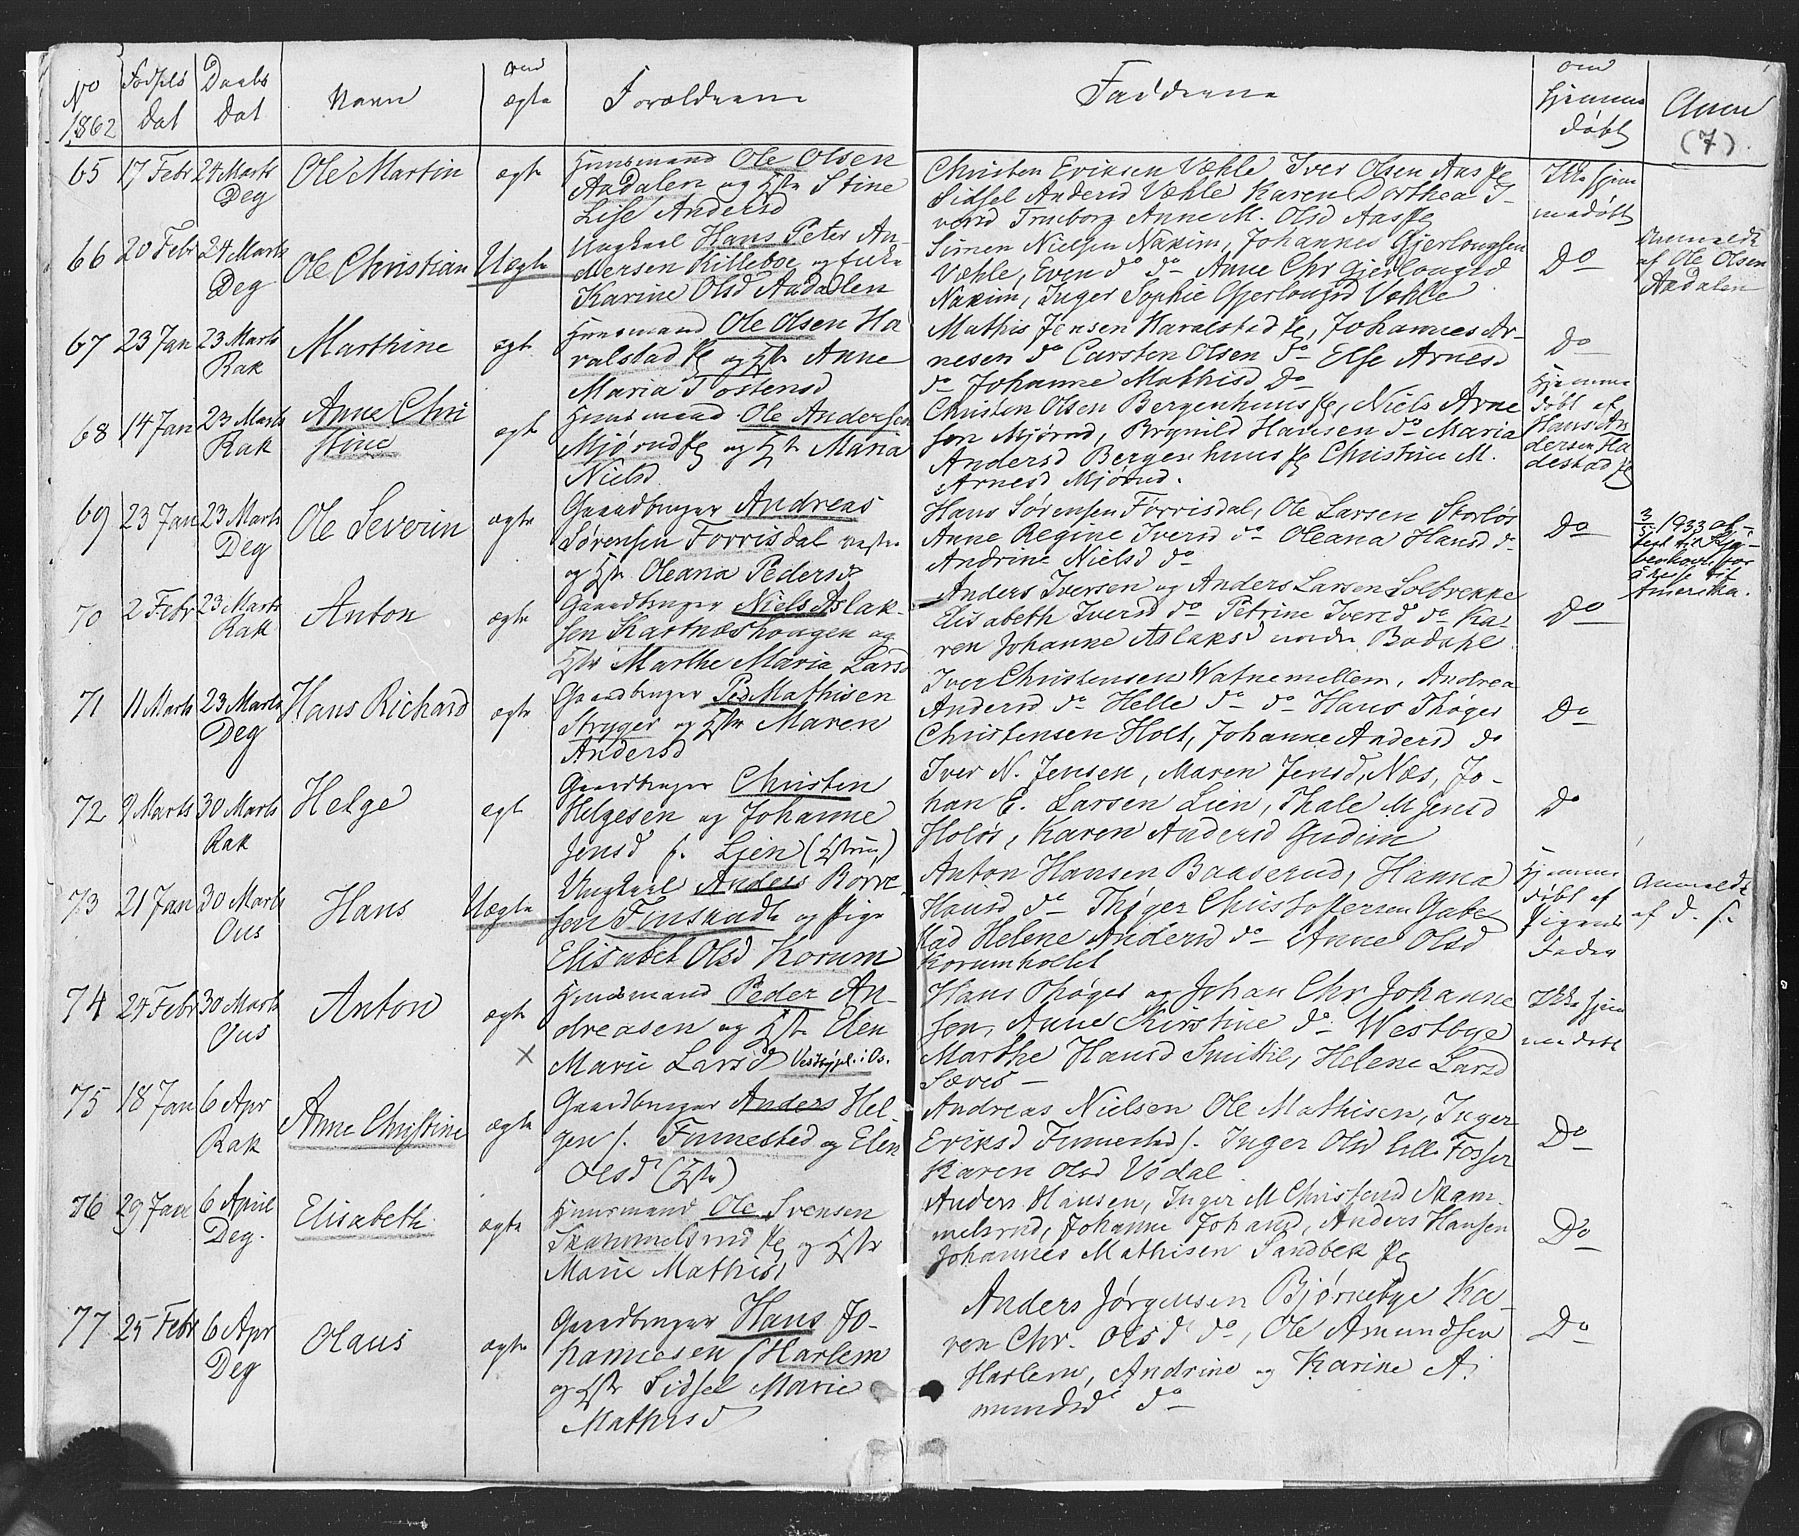 No 1862 | Fødsels Dat | Daabs Dat | Navn | om ægte | Forældrene | Faddrene | om hjemme døbt | Anm (7)
65 | 17 Febr | 24 Marts Deg | Ole Martin | ægte
Huusmand Ole Olsen
Aadalen og Hstr Stine
Lise Andersd
Christen Eriksen Væhle Iver Olsen Aas
Sidsel Andersd Væhle Karen Dorthea I-
versd Anne M. Olsd Aas
Ikke hjem
medøbt
66 | 20 Febr | 24 Marts Deg | Ole Christian | Uægte
Ungkarl Hans Peter An-
dersen Killeboe og
Karine Olsd Aadalen
Simen Nielsen Naxim, Johannes Gjerlougsen
Væhle, Even do do Anne Chr Gjerlougsd
Naxim, Inger Sophie Gjerlougsd Væhle
Do
Anmeldt
af Ole Olsen
Aadalen
67 | 23 Jan | 23 Marts Rak | Marthine | ægte
Huusmand Ole Olsen Ha
ralstad og Hstr Anne
Maria Tostensd
Mathis Jensen Haralstad, Johannes Ar-
nesen do Carsten Olsen do Else Arnesd
do Johanne Mathisd Do
Do
68 | 14 Jan | 23 Marts Rak | Anne Chri stine | ægte
Huusmand Ole Andersen
Mjørud og Hstr Maria
Nielsd
Christen Olsen Bergenhuus, Niels Arne
sen Mjørud, Brynild Hansen do Maria
Andersd Bergenhuus Christine M.
Arnesd Mjørud.
Hjemme
døbt af
Hans An
dersen Ha
destad
69 | 23 Jan | 23 Marts Deg | Ole Severin | ægte
Gaardbruger Andreas
Sørensen Torrisdal
og Hstr Oleana Pedersd
Hans Sørensen Torrisdal, Ole Larsen Storløs
Anne Regine Iversd do Oleana Hansd do
Andrine Nielsd do
Do
3/ 1933 at-
test til Kjø-
benhavn for
reise til
Amerika.
70 | 2 Febr | 23 Marts Rak | Anton | ægte
Gaardbruger Niels Aslak-
sen Kartnæshaugen og
Hstr Marthe Maria Larsd
Anders Iversen og Anders Larsen Solbrekke
Elisabeth Iversd do Petrine Iversd do Ka-
ren Johanne Aslaksd nordre Bødahl
Do
71 | 11 Marts | 23 Marts Deg | Hans Richard | ægte
Gaardbruger Ped Mathisen
Stryger og Hstr Maren
Andersd
Iver Christensen Watnemellem, Andrea
Andersd do Helle do do Hans Thøger
Christensen Holt, Johanne Andersd do
Do
72 | 9 Marts | 30 Marts Rak | Helge | ægte
Gaardbruger Christen
Helgesen og Johanne
Jensd f. Lien (Hstru)
Iver N. Jensen, Maren Jensd, Næs, Jo-
han E. Larsen Lien, Thale M Jensd
Holøs, Karen Andersd Gudim
Do
73 | 21 Jan | 30 Marts Ous | Hans | Uægte
Ungkarl Anders Borre-
sen Finsaadt og Pige
Elisabet Olsd Korum
Anton Hansen Baaserud, Hanna
Hansd do Thøger Christoffersen Gabe
stad Helene Andersd do Anne Olsd
Korumholdt
Hjemme
døbt af
Pigens
Fader
Anmeldt
af d. f.
74 | 24 Febr | 30 Marts Ous | Anton | ægte ×
Huusmand Peder An-
dreasen og Hstr Elen
Marie Larsd Vestbype. i Os.
Hans Thøger og Johan Chr Johanne
sen, Anne Kirstine do Westbye
Marthe Hansd Smikkil, Helene Larsd
Sæves
Ikke hjem
medøbt
75 | 18 Jan | 6 Apr Rak | Anne Christine | ægte
Gaardbruger Anders Hel-
gesen f. Finnestad og Elen
Olsd (Hstr)
Andreas Nielsen Ole Mathisen, Inger
Eriksd Finnestad f. Inger Olsd lille Fosser
Karen Olsd Vødal
Do
76 | 29 Jan | 6 April Deg. | Elisabeth | ægte
Huusmand Ole Svensen
Skammelsrud og Hstr
Marie Mathisd
Anders Hansen, Inger M Christensd Skam-
melsrud, Johanne Johansd, Anders Hansen
Johannes Mathisen Sandbek
Do
77 | 25 Febr | 6 Apr Deg | Olaus | ægte
Gaardbruger Hans Jo-
hannesen Harlem
og Hstr Sidsel Marie
Mathisd
Anders Jørgensen Bjørnebye Ka-
ren Chr. Olsd do, Ole Amundsen
Harlem, Andrine og Karine A-
mundsd do
Do